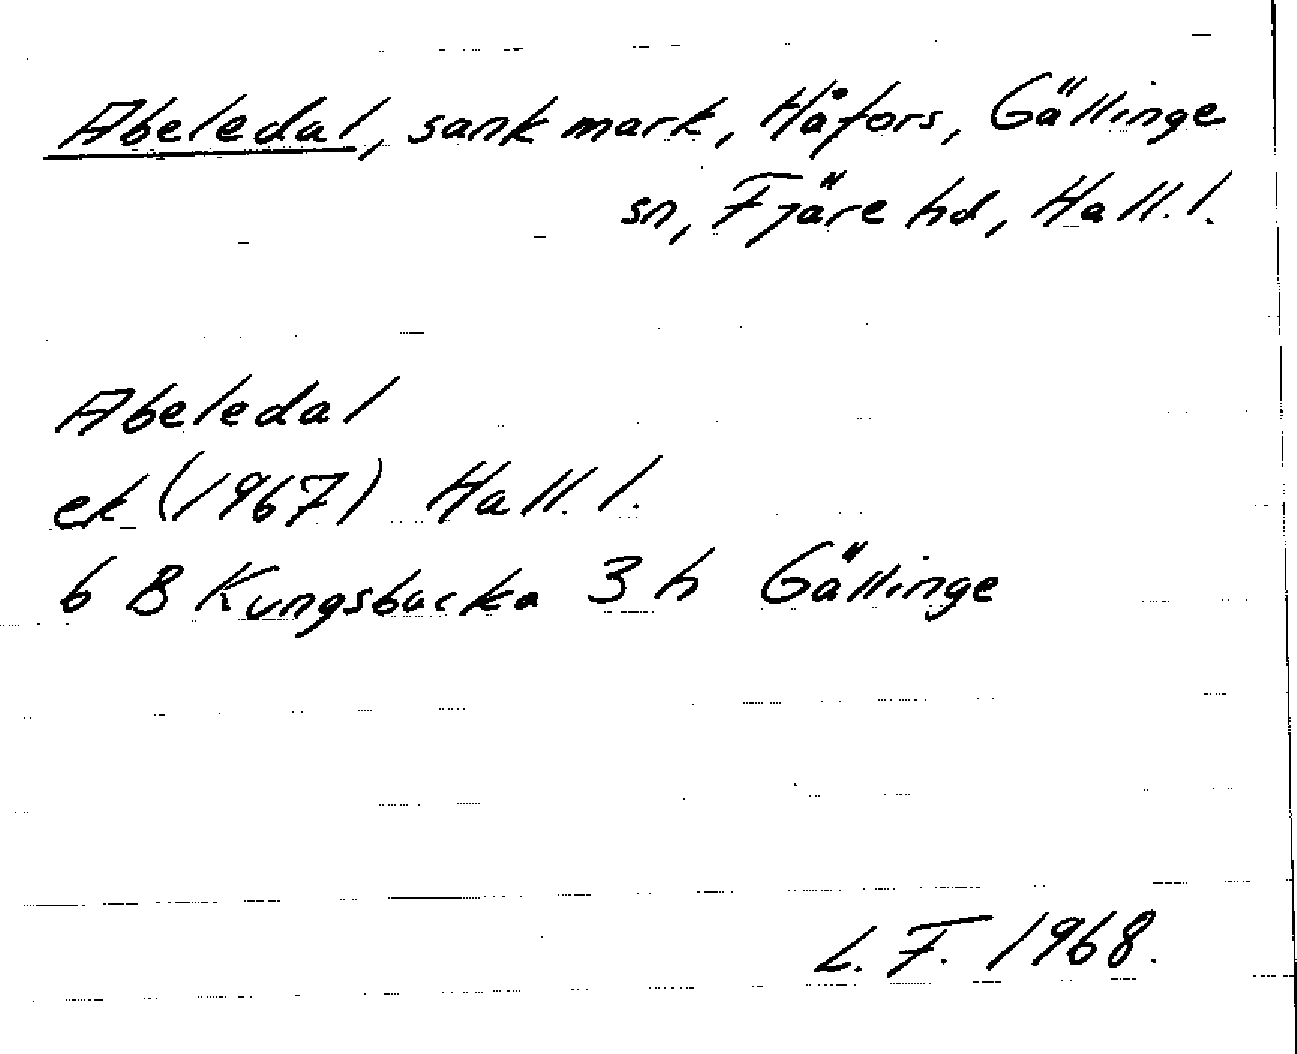 Abeledal, sank mark, Håfors, Gällinge
sn, Fjäre hd, Hall. l.
Abeledal
ek (1967) Hall. l.
6 B Kungsbacka 3 h Gällinge
L. F. 1968.